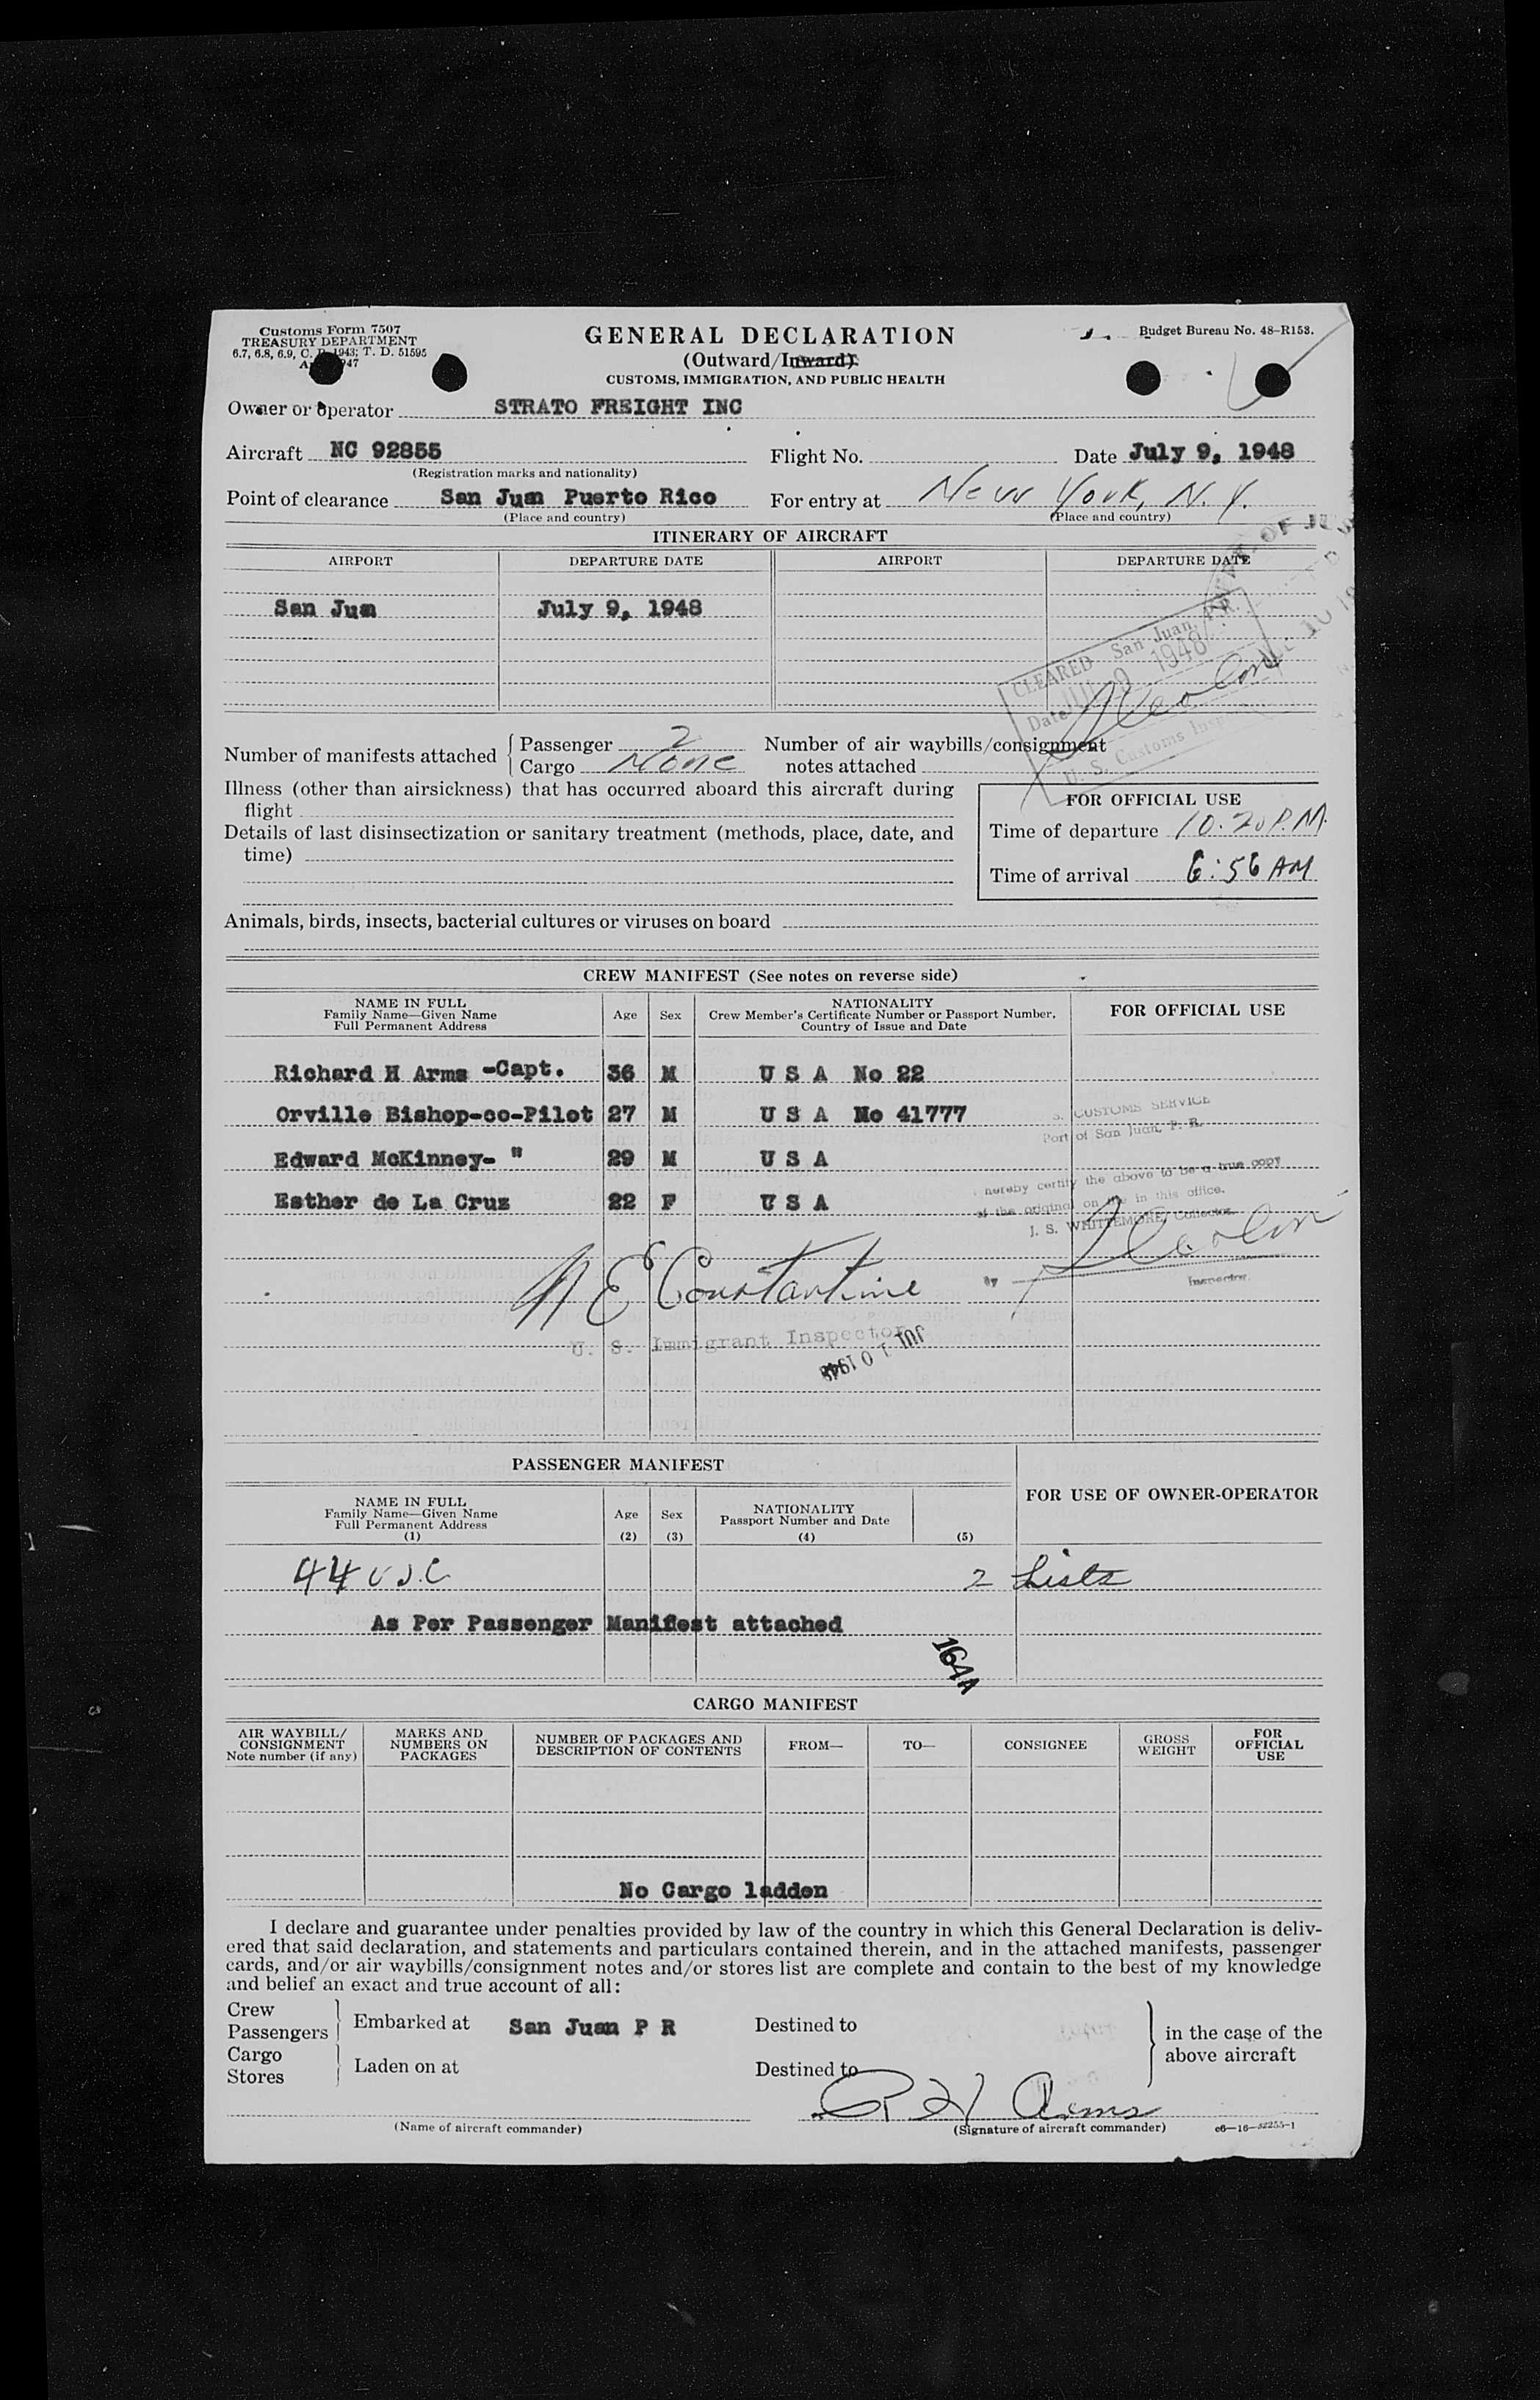 Customs Form 7507
TREASURY DEPARTMENT
6.7, 6.8, 6.9, C. 1943; T. D. 51595
GENERAL DECLARATION
(Outward/Inward)
CUSTOMS, IMMIGRATION, AND PUBLIC HEALTH
Budget Bureau No. 48-R153.
Owner or operator STRATO FREIGHT INC
Aircraft NC 92855 Flight No. Date July 9, 1948
(Registration marks and nationality)
Point of clearance San Juan Puerto Rico For entry at New York, N. Y.
(Place and country) (Place and country)
ITINERARY OF AIRCRAFT
AIRPORT DEPARTURE DATE AIRPORT DEPARTURE DATE
San Juan July 9, 1948
CLEARED San Juan, P.R.
Date JUL 9 1948
U. S. Customs Inspector
Number of manifests attached { Passenger 2 Number of air waybills/consignment
Cargo None notes attached
Illness (other than airsickness) that has occurred aboard this aircraft during
flight
Details of last disinsectization or sanitary treatment (methods, place, date, and
time)
FOR OFFICIAL USE
Time of departure 10.20 P.M.
Time of arrival 6:56 AM
Animals, birds, insects, bacterial cultures or viruses on board
CREW MANIFEST (See notes on reverse side)
NAME IN FULL
Family Name—Given Name
Full Permanent Address
Age Sex
NATIONALITY
Crew Member's Certificate Number or Passport Number,
Country of Issue and Date
FOR OFFICIAL USE
Richard H Arms -Capt. 36 M U S A No 22
Orville Bishop-co-Pilot 27 M U S A No 41777
Edward McKinney- " 29 M U S A
Esther de La Cruz 22 F U S A
S. CUSTOMS SERVICE
Port of San Juan, P. R.
hereby certify the above to be a true copy
of the original on file in this office.
J. S. WHITTEMORE, Collector.
By
Inspector.
N E Constantine
U. S. Immigrant Inspector
JUL 10 1948
PASSENGER MANIFEST
NAME IN FULL
Family Name—Given Name
Full Permanent Address
(1)
Age
(2)
Sex
(3)
NATIONALITY
Passport Number and Date
(4) (5)
FOR USE OF OWNER-OPERATOR
44 U.S.C 2 Lists
As Per Passenger Manifest attached
164A
CARGO MANIFEST
AIR WAYBILL/
CONSIGNMENT
Note number (if any)
MARKS AND
NUMBERS ON
PACKAGES
NUMBER OF PACKAGES AND
DESCRIPTION OF CONTENTS
FROM— TO— CONSIGNEE
GROSS
WEIGHT
FOR
OFFICIAL
USE
No Cargo ladden
I declare and guarantee under penalties provided by law of the country in which this General Declaration is deliv-
ered that said declaration, and statements and particulars contained therein, and in the attached manifests, passenger
cards, and/or air waybills/consignment notes and/or stores list are complete and contain to the best of my knowledge
and belief an exact and true account of all:
Crew
Passengers
Embarked at San Juan P R Destined to
Cargo
Stores
Laden on at Destined to
in the case of the
above aircraft
R H Arms
(Name of aircraft commander) (Signature of aircraft commander) c6—16—52255-1